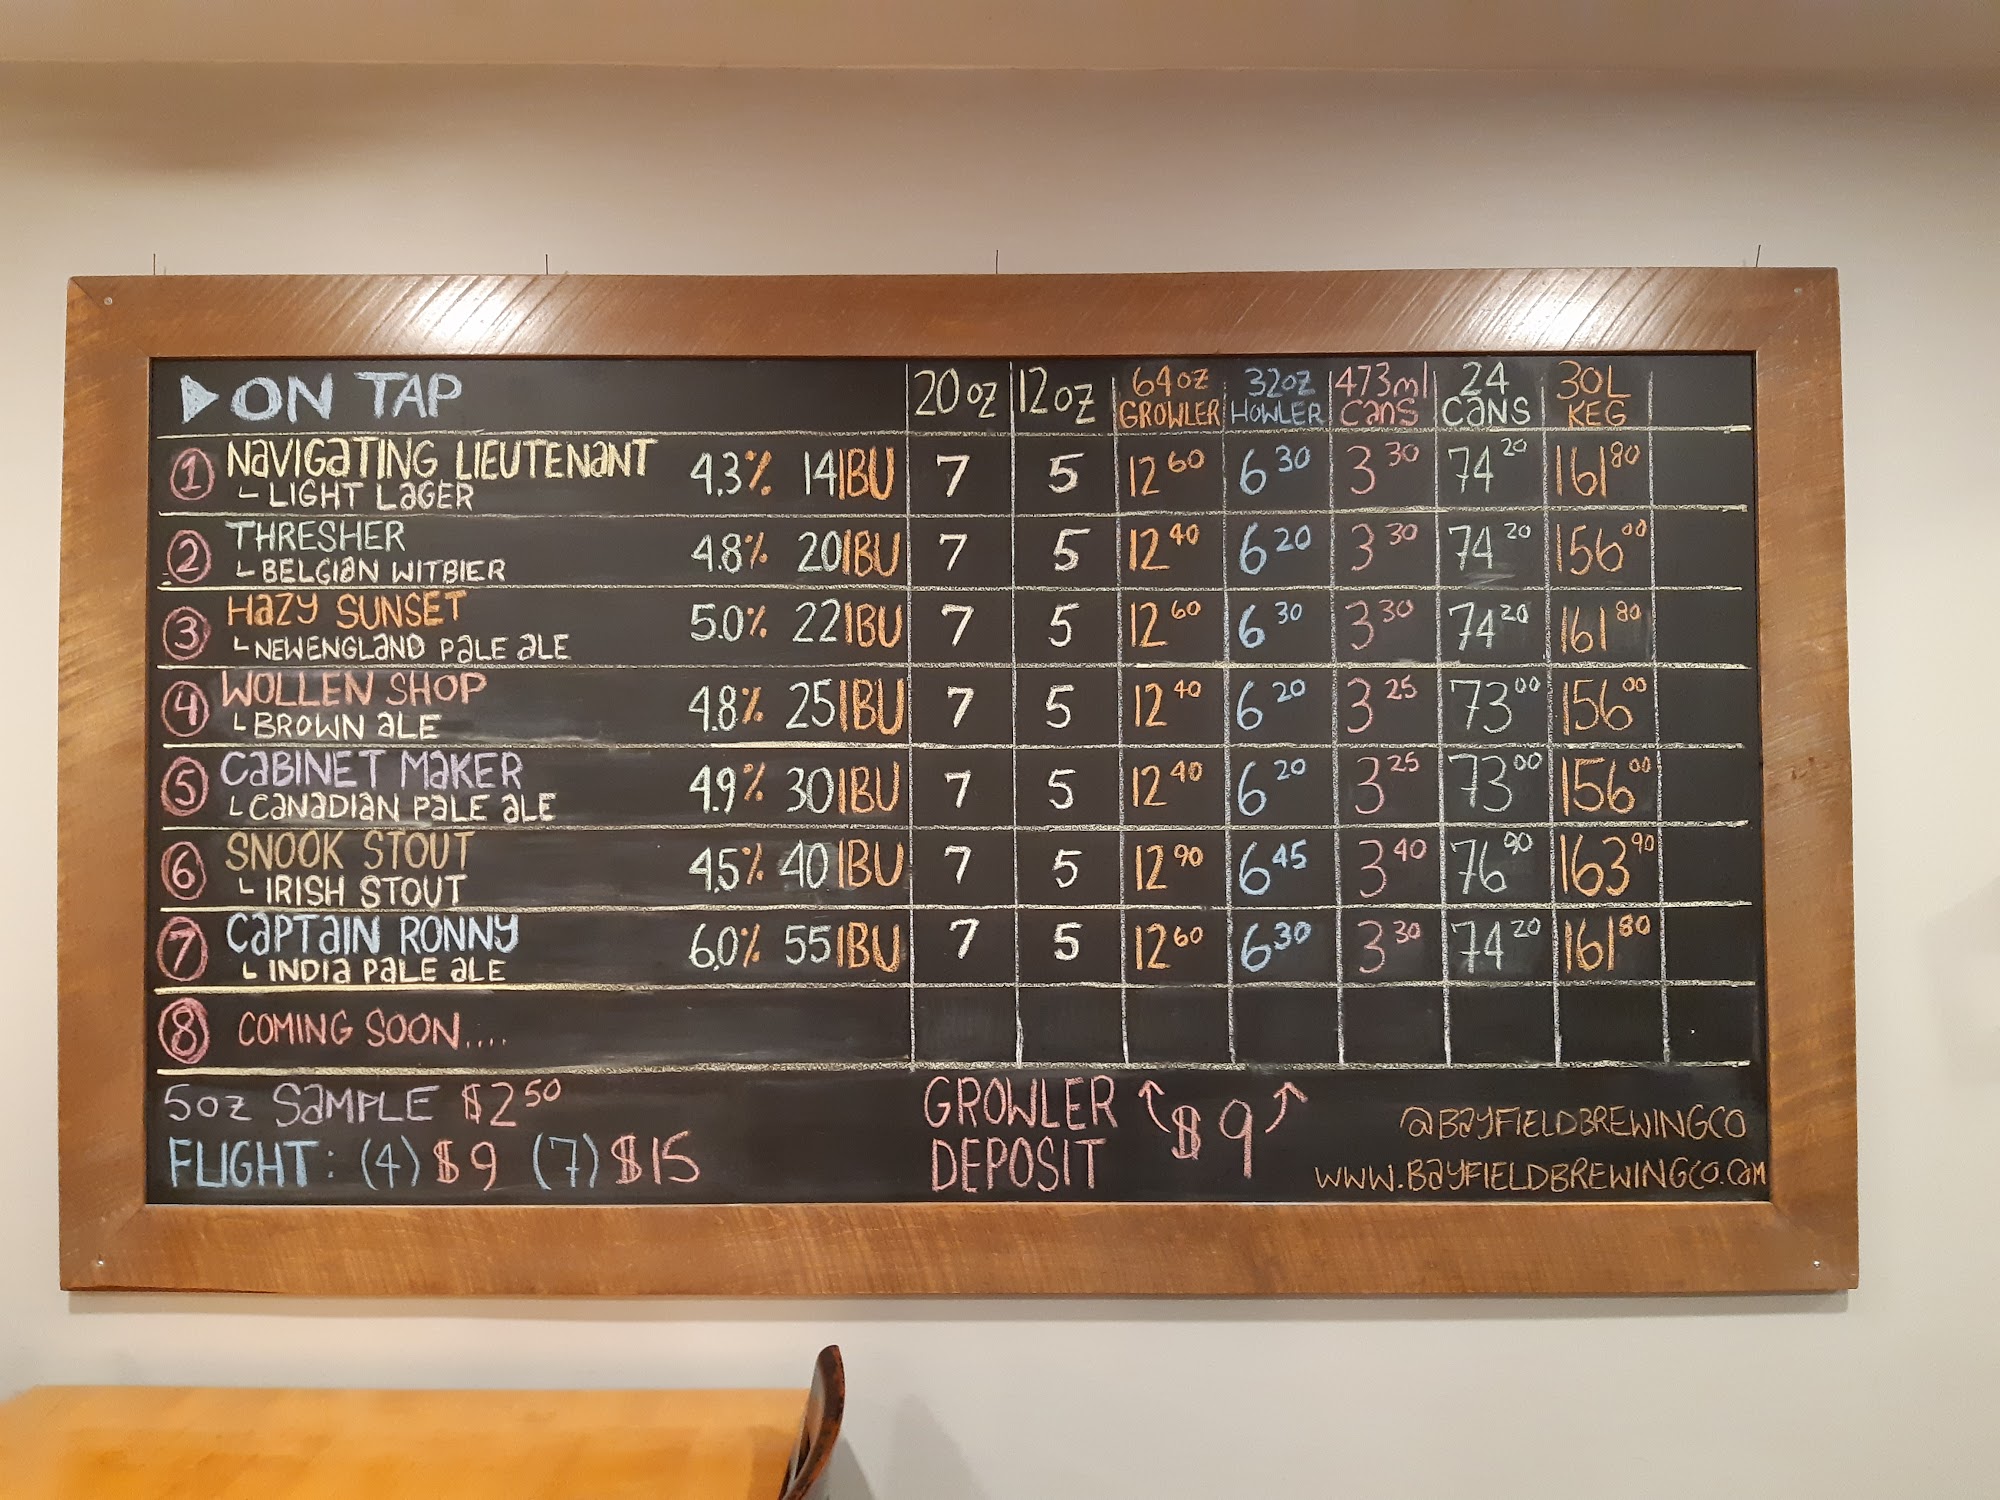 ▶ON TAP 20 oz 12 oz 64oz GROWLER 32oz HOWLER 473ml CANS 24 CANS 30L KEG
1 NAVIGATING LIEUTENANT 4.3% 14 IBU 7 5 12 60 6 30 3 30 74 20 161 80
LIGHT LAGER
2 THRESHER 4.8% 20 IBU 7 5 12 40 6 20 3 30 74 20 156 00
BELGIAN WITBIER
3 HAZY SUNSET 5.0% 22 IBU 7 5 12 60 6 30 3 30 74 20 161 80
NEW ENGLAND PALE ALE
4 WOLLEN SHOP 4.8% 25 IBU 7 5 12 40 6 20 3 25 73 00 156 00
BROWN ALE
5 CABINET MAKER 4.9% 30 IBU 7 5 12 40 6 20 3 25 73 00 156 00
CANADIAN PALE ALE
6 SNOOK STOUT 4.5% 40 IBU 7 5 12 90 6 45 3 40 76 90 163 90
IRISH STOUT
7 CAPTAIN RONNY 6.0% 55 IBU 7 5 12 60 6 30 3 30 74 20 161 80
INDIA PALE ALE
8 COMING SOON....
5oz SAMPLE $2 50
FLIGHT: (4) $9 (7) $15
GROWLER
DEPOSIT $9
@BAYFIELDBREWINGCO
WWW.BAYFIELDBREWINGCO.COM